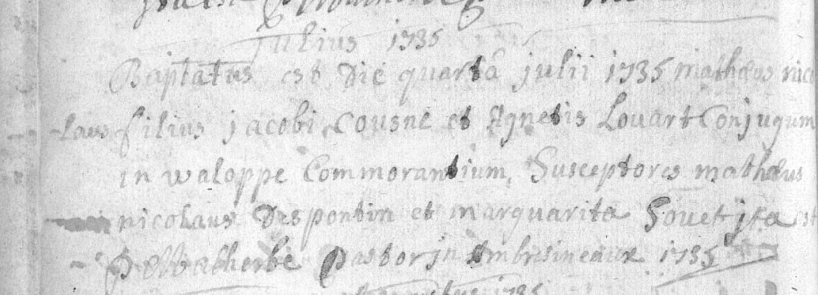 Julius 1735
Baptatus est Die quarta julii 1735 mathæus nico
-laus filius jacobi Cousne et Agnetis Louart Conjugum
in waloppe Commorantium, Susceptores mathæus
nicolaus Despontin et marguarita Souet ita est
Pastor in Ambrisineaux 1735
1735